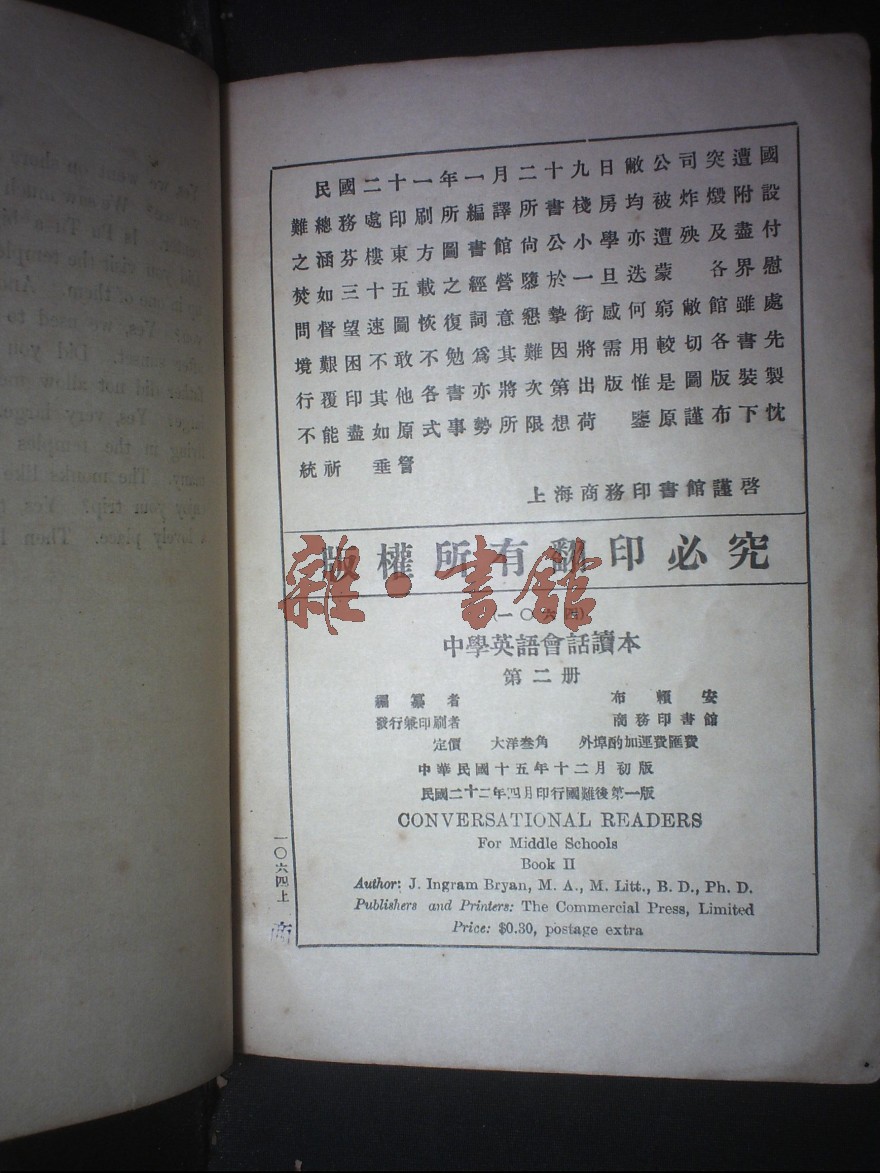 民國二十一年一月二十九日敝公司突遭國
難總務處印刷所編譯所書棧房均被炸燬附設
之涵芬樓東方圖書館尙公小學亦遭殃及盡付
焚如三十五載之經營隳於一旦迭蒙 各界慰
問督望速圖恢復詞意懇摯銜感何窮敝館雖處
境艱困不敢不勉爲其難因將需用較切各書先
行覆印其他各書亦將次第出版惟是圖版裝製
不能盡如原式事勢所限想荷 鑒原謹布下忱
統祈 垂詧
上海商務印書館謹啓
版權所有翻印必究
雜·書館
(一〇六四)
中學英語會話讀本
第二册
編纂者 布賴安
發行兼印刷者 商務印書館
定價 大洋叁角 外埠酌加運費匯費
中華民國十五年十二月初版
民國二十二年四月印行國難後第一版
CONVERSATIONAL READERS
For Middle Schools
Book II
Author: J. Ingram Bryan, M. A., M. Litt., B. D., Ph. D.
Publishers and Printers: The Commercial Press, Limited
Price: $0.30, postage extra
一〇六四上
商